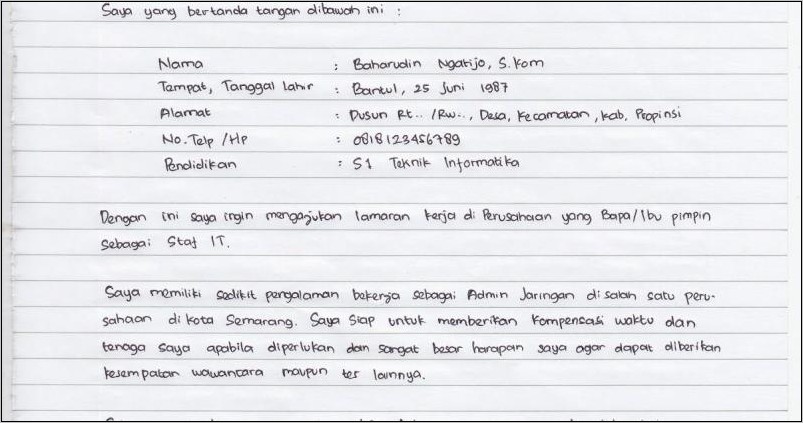 Saya yang bertanda tangan dibawah ini :
Nama : Baharudin Ngatijo, S.Kom
Tempat, Tanggal Lahir : Bantul, 25 Juni 1987
Alamat : Dusun Rt.. /Rw.., Desa, Kecamatan, Kab, Propinsi
No. Telp /HP : 0818123456789
Pendidikan : S1 Teknik Informatika
Dengan ini saya ingin mengajukan lamaran kerja di Perusahaan yang Bapa/Ibu pimpin
sebagai Staf IT.
Saya memiliki sedikit pengalaman bekerja sebagai Admin Jaringan di salah satu peru-
sahaan di kota Semarang. Saya siap untuk memberikan kompensasi waktu dan
tenaga saya apabila diperlukan dan sangat besar harapan saya agar dapat diberikan
kesempatan wawancara maupun tes lainnya.